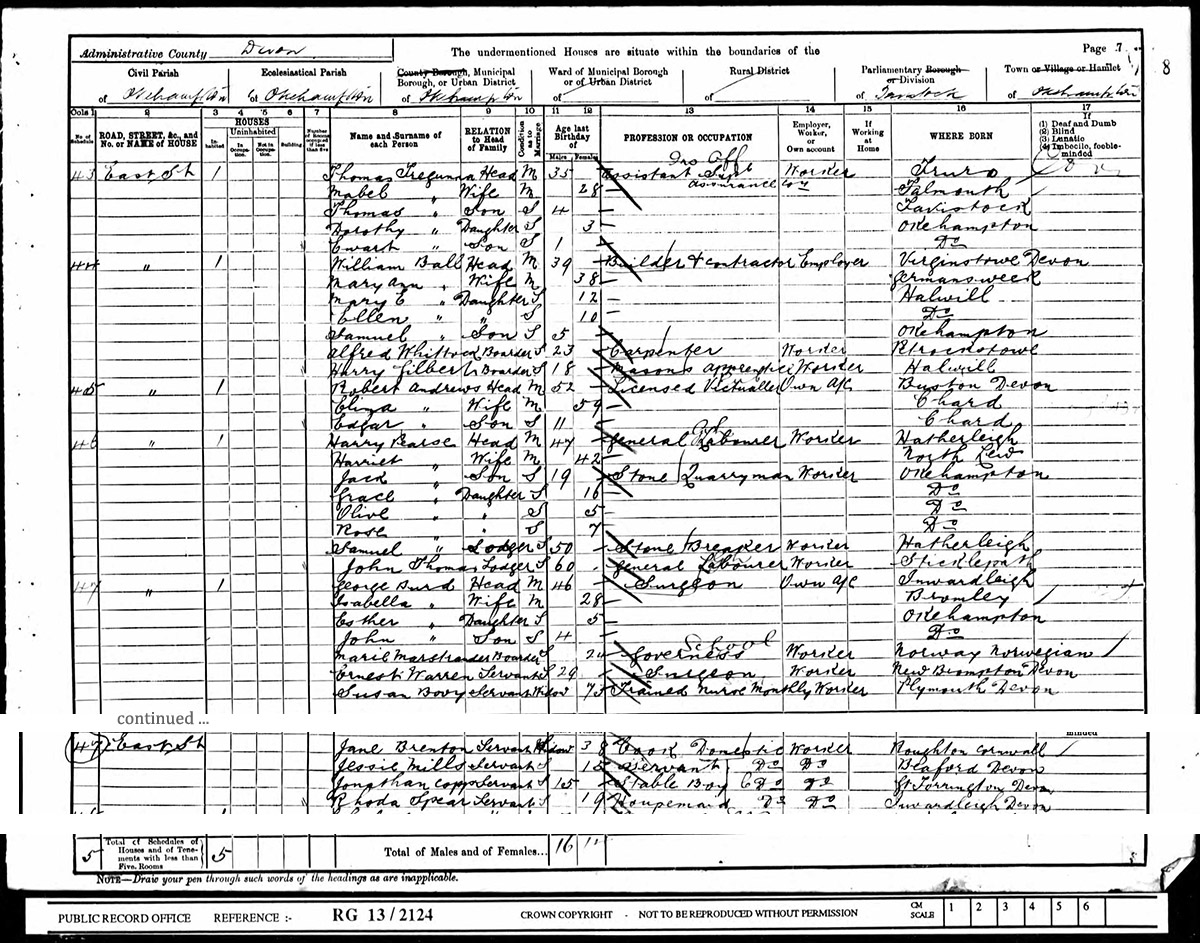 Administrative County Devon The undermentioned Houses are situate within the boundaries of the Page 7
8
Civil Parish Ecclesiastical Parish County Borough, Municipal Borough, or Urban District Ward of Municipal Borough or of Urban District Rural District Parliamentary Borough or Division Town or Village or Hamlet
of Okehampton of Okehampton of Okehampton of of of Tavistock of Okehampton
Cols 1 2 3 4 5 6 7 8 9 10 11 12 13 14 15 16 17
No. of Schedule ROAD, STREET, &c., and No. or NAME of HOUSE HOUSES Inhabited Uninhabited In Occupation Not in Occupation Building Number of Rooms occupied if less than five Name and Surname of each Person RELATION to Head of Family Condition as to Marriage Age last Birthday of Males Females PROFESSION OR OCCUPATION Employer, Worker, or Own account If Working at Home WHERE BORN If (1) Deaf and Dumb (2) Blind (3) Lunatic (4) Imbecile, feeble-minded
43 East St 1 Thomas Tregunna Head M 35 Assistant Supt Assurance Coy Worker Truro
Mabel " Wife M 28 Falmouth
Thomas " Son S 4 Tavistock
Dorothy " Daughter S 3 Okehampton
Ewart " Son S 1 Do
44 " 1 William Ball Head M 39 Builder & contractor Employer Virginstowe Devon
Mary Ann " Wife M 38 Germansweek
Mary E " Daughter S 12 Halwill
Ellen " " S 10 Do
Samuel " Son S 5 Okehampton
Alfred Whittock Boarder S 23 Carpenter Worker Ptrockstowe
Harry Gilbert Boarder S 18 Masons apprentice Worker Halwill
45 " 1 Robert Andrews Head M 52 Licensed Victualler Own A/c Buston Devon
Eliza " Wife M 59 Chard
Edgar " Son S 11 Chard
46 " 1 Harry Pearse Head M 47 General Labourer Worker Hatherleigh
Harriet " Wife M 42 North Lew
Jack " Son S 19 Stone Quarryman Worker Okehampton
Grace " Daughter S 16 Do
Olive " " S 5 Do
Rose " " S 7 Do
Samuel " Lodger S 50 Stone Breaker Worker Hatherleigh
John Thomas Lodger S 60 General Labourer Worker Sticklepath
47 " 1 George Burd Head M 46 Surgeon Own A/c Inwardleigh
Isabella " Wife M 28 Bromley
Esther " Daughter S 5 Okehampton
John " Son S 4 Do
Marie Marstrander Boarder S 24 School Governess Worker Norway Norwegian
Ernest Warren Servant S 29 Surgeon Worker New Brompton Devon
Susan Bovy Servant Widow 75 Trained Nurse Monthly Worker Plymouth Devon
continued ...
minded
47 East St Jane Brenton Servant Widow 38 Cook Domestic Worker Roughton Cornwall
Jessie Mills Servant S 15 Servant Do Do Beaford Devon
Jonathan Copp Servant S 15 Stable Boy Do Do Gt Torrington Devon
Rhoda Spear Servant S 19 Housemaid Do Do Inwardleigh Devon
5 Total of Schedules of Houses and of Tenements with less than Five Rooms 5 Total of Males and of Females... 16
NOTE—Draw your pen through such words of the headings as are inapplicable.
PUBLIC RECORD OFFICE REFERENCE :- RG 13/2124 CROWN COPYRIGHT - NOT TO BE REPRODUCED WITHOUT PERMISSION CM SCALE 1 2 3 4 5 6